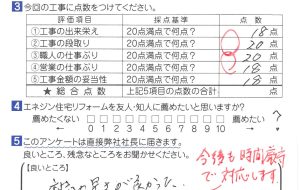 3 今回の工事に点数をつけてください。
評価項目 採点基準 点数
①工事の出来栄え 20点満点で何点? 18点
②工事の段取り 20点満点で何点? 20点
③職人の仕事ぶり 20点満点で何点? 20点
④営業の仕事ぶり 20点満点で何点? 18点
⑤工事金額の妥当性 20点満点で何点? 18点
★総合点数 上記5項目の点数の合計 点
4 エネジン住宅リフォームを友人・知人に薦めたいと思いますか?
薦めたくない 薦めたい ?
0 1 2 3 4 5 6 7 8 9 10
5 このアンケートは直接弊社社長に届きます。
良いところ、残念なところをお聞かせください。
今後も時間厳守
で対応します。
【良いところ】